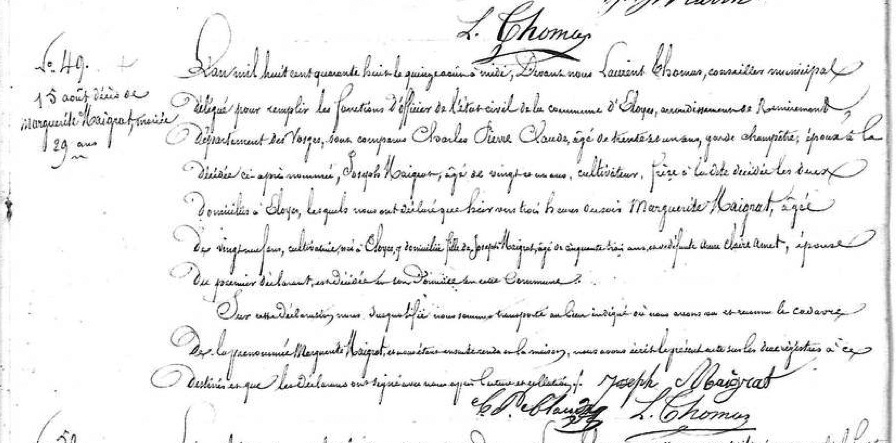 L. Thomas
No 49.
15 août décès de
Marguerite Maigrat, mariée
29 ans
L'an mil huit cent quarante huit le quinze août à midi, Devant nous Laurent Thomas, conseiller municipal
délégué pour remplir les fonctions d'officier de l'état civil de la commune d'Eloyes, arrondissement de Remiremont
Département des Vosges, sont comparus Charles Pierre Claude, âgé de trente et un ans, garde champêtre, époux à la
décédée ci-après nommée, Joseph Maigrat, âgé de vingt ans, cultivateur, frère à la dite décédée les deux
domiciliés à Eloyes, lesquels nous ont déclaré que hier vers trois heures du soir Marguerite Maigrat, âgée
de vingt neuf ans, cultivatrice, née à Eloyes, y domiciliée fille de Joseph Maigrat, âgé de cinquante trois ans, et de défunte Anne Claire Amet, épouse
du premier déclarant, est décédée en son Domicile en cette Commune.
Sur cette déclaration, nous susqualifié nous sommes transporté au lieu indiqué où nous avons vu et reconnu le cadavre
De la prénommée Marguerite Maigrat, et nous étant ensuite rendu en la maison, nous avons écrit le présent acte sur les deux registres à ce
destinés et que les déclarans ont signé avec nous après lecture et collation. Joseph Maigrat
C. P. Claude L. Thomas
50